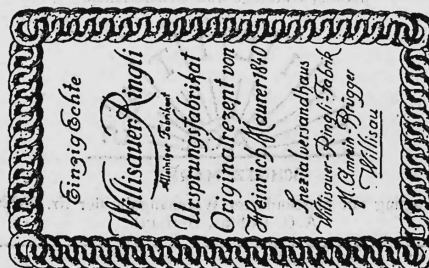 Einzig Echte
Willisauer-Ringli
Alleiniger Fabrikant
Ursprungsfabrikat
Originalrezept von
Heinrich Maurer 1840
Spezialversandhaus
Willisauer-Ringli-Fabrik
M. Amrein-Brügger
Willisau